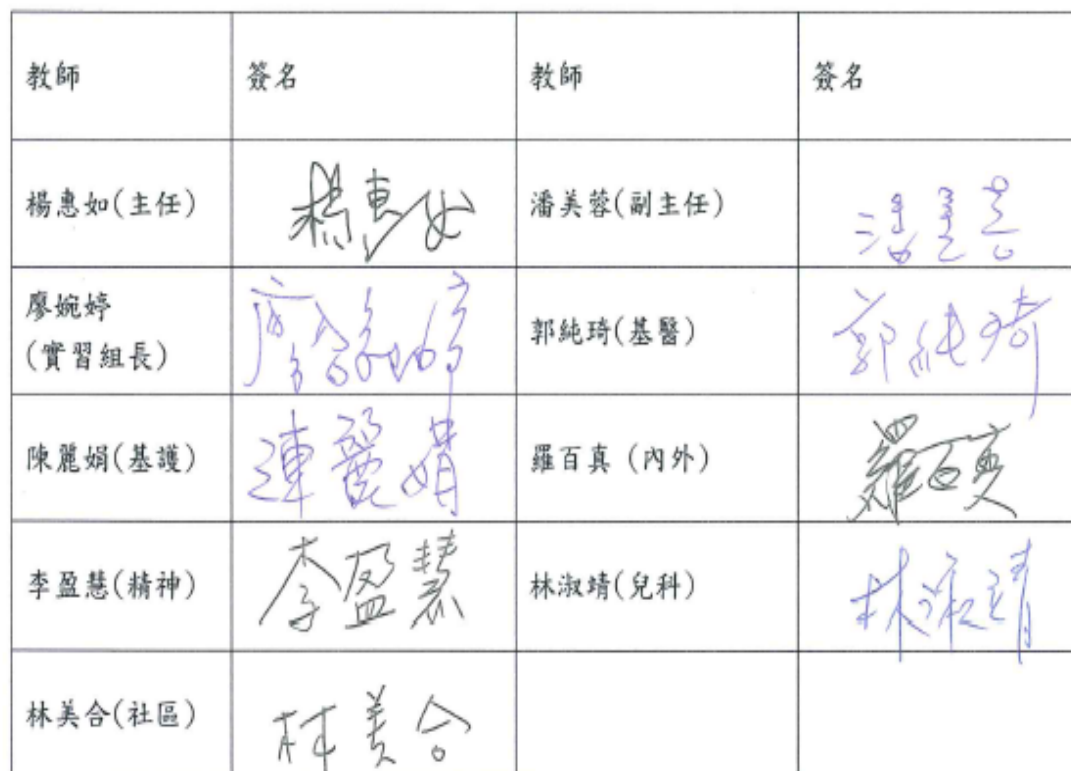 教師 簽名 教師 簽名
楊惠如(主任) 楊惠如 潘美蓉(副主任) 潘美蓉
廖婉婷
(實習組長) 廖婉婷 郭純琦(基醫) 郭純琦
陳麗娟(基護) 陳麗娟 羅百真 (內外) 羅百真
李盈慧(精神) 李盈慧 林淑靖(兒科) 林淑靖
林美合(社區) 林美合